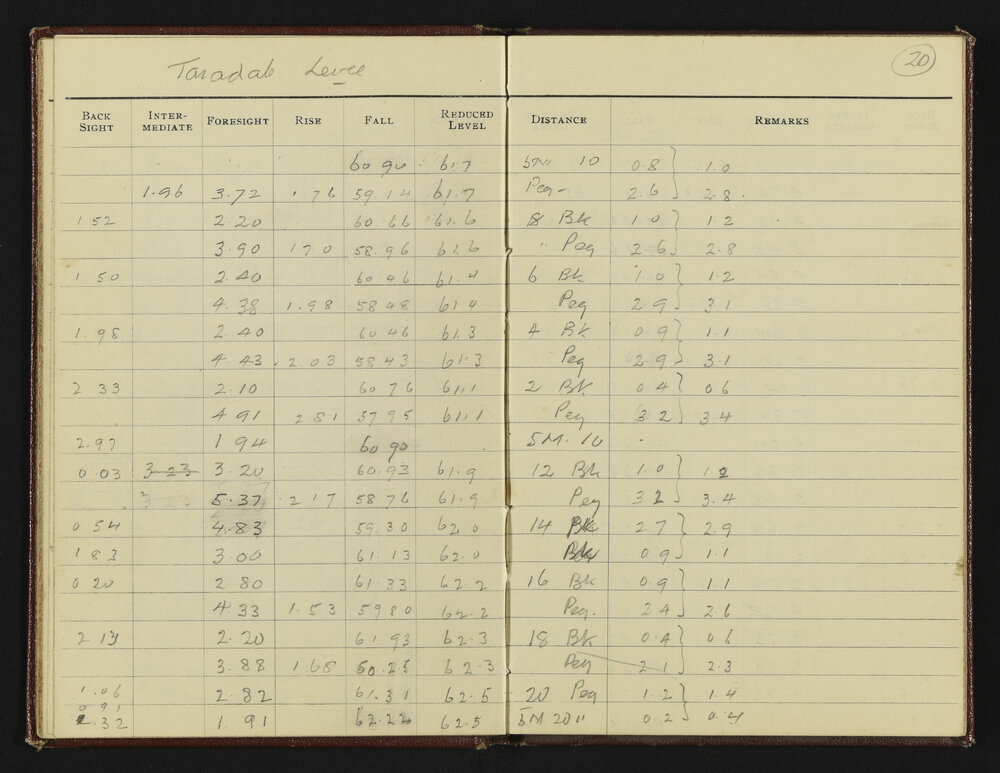 20
Taradab Levee
BACK SIGHT INTER-MEDIATE FORESIGHT RISE FALL REDUCED LEVEL DISTANCE REMARKS
60 90 61.7 5M 10 0.8 } 1.0
1.96 3.72 .76 59.14 61.7 Peg- 2.6 } 2.8
1 52 2.20 60 66 61.6 8 Bk 1.0 } 1.2
3.90 1.70 58.96 61.6 " Peg 2.6 } 2.8
1.50 2.40 60 46 61.4 6 Bk 1.0 } 1.2
4.38 1.98 58 48 61 4 Peg 2.9 } 3.1
1.98 2.40 60 46 61.3 4 Bk 0.9 } 1.1
4.43 2.03 58 43 61.3 Peg 2.9 } 3.1
2 33 2.10 60.76 61.1 2 Bk 0.4 } 0.6
4 91 2 81 57 95 61.1 Peg 3.2 } 3.4
2.97 1.94 60 90 5M. 10
0.03 3 23 3.20 60.93 61.9 12 Bk 1.0 } 1.2
5.37 2.17 58 76 61.9 Peg 3 2 } 3.4
0 54 4.83 59.30 62 0 14 Bk 2.7 } 2.9
1 83 3.00 61.13 62.0 Bk 0 9 } 1.1
0 20 2 80 61.33 62.2 16 Bk 0.9 } 1.1
4.33 1.53 59 80 62.2 Peg. 2 4 } 2 6
2 13 2.20 61 93 62.3 18 Bk 0.4 } 0 6
3.88 1.68 60.25 62.3 Peg 2.1 } 2.3
1.06 2.82 61.31 62.5 20 Peg 1.2 } 1.4
0 91
2.32 1.91 62.22 62.5 5M 20 " 0.2 } 0.4